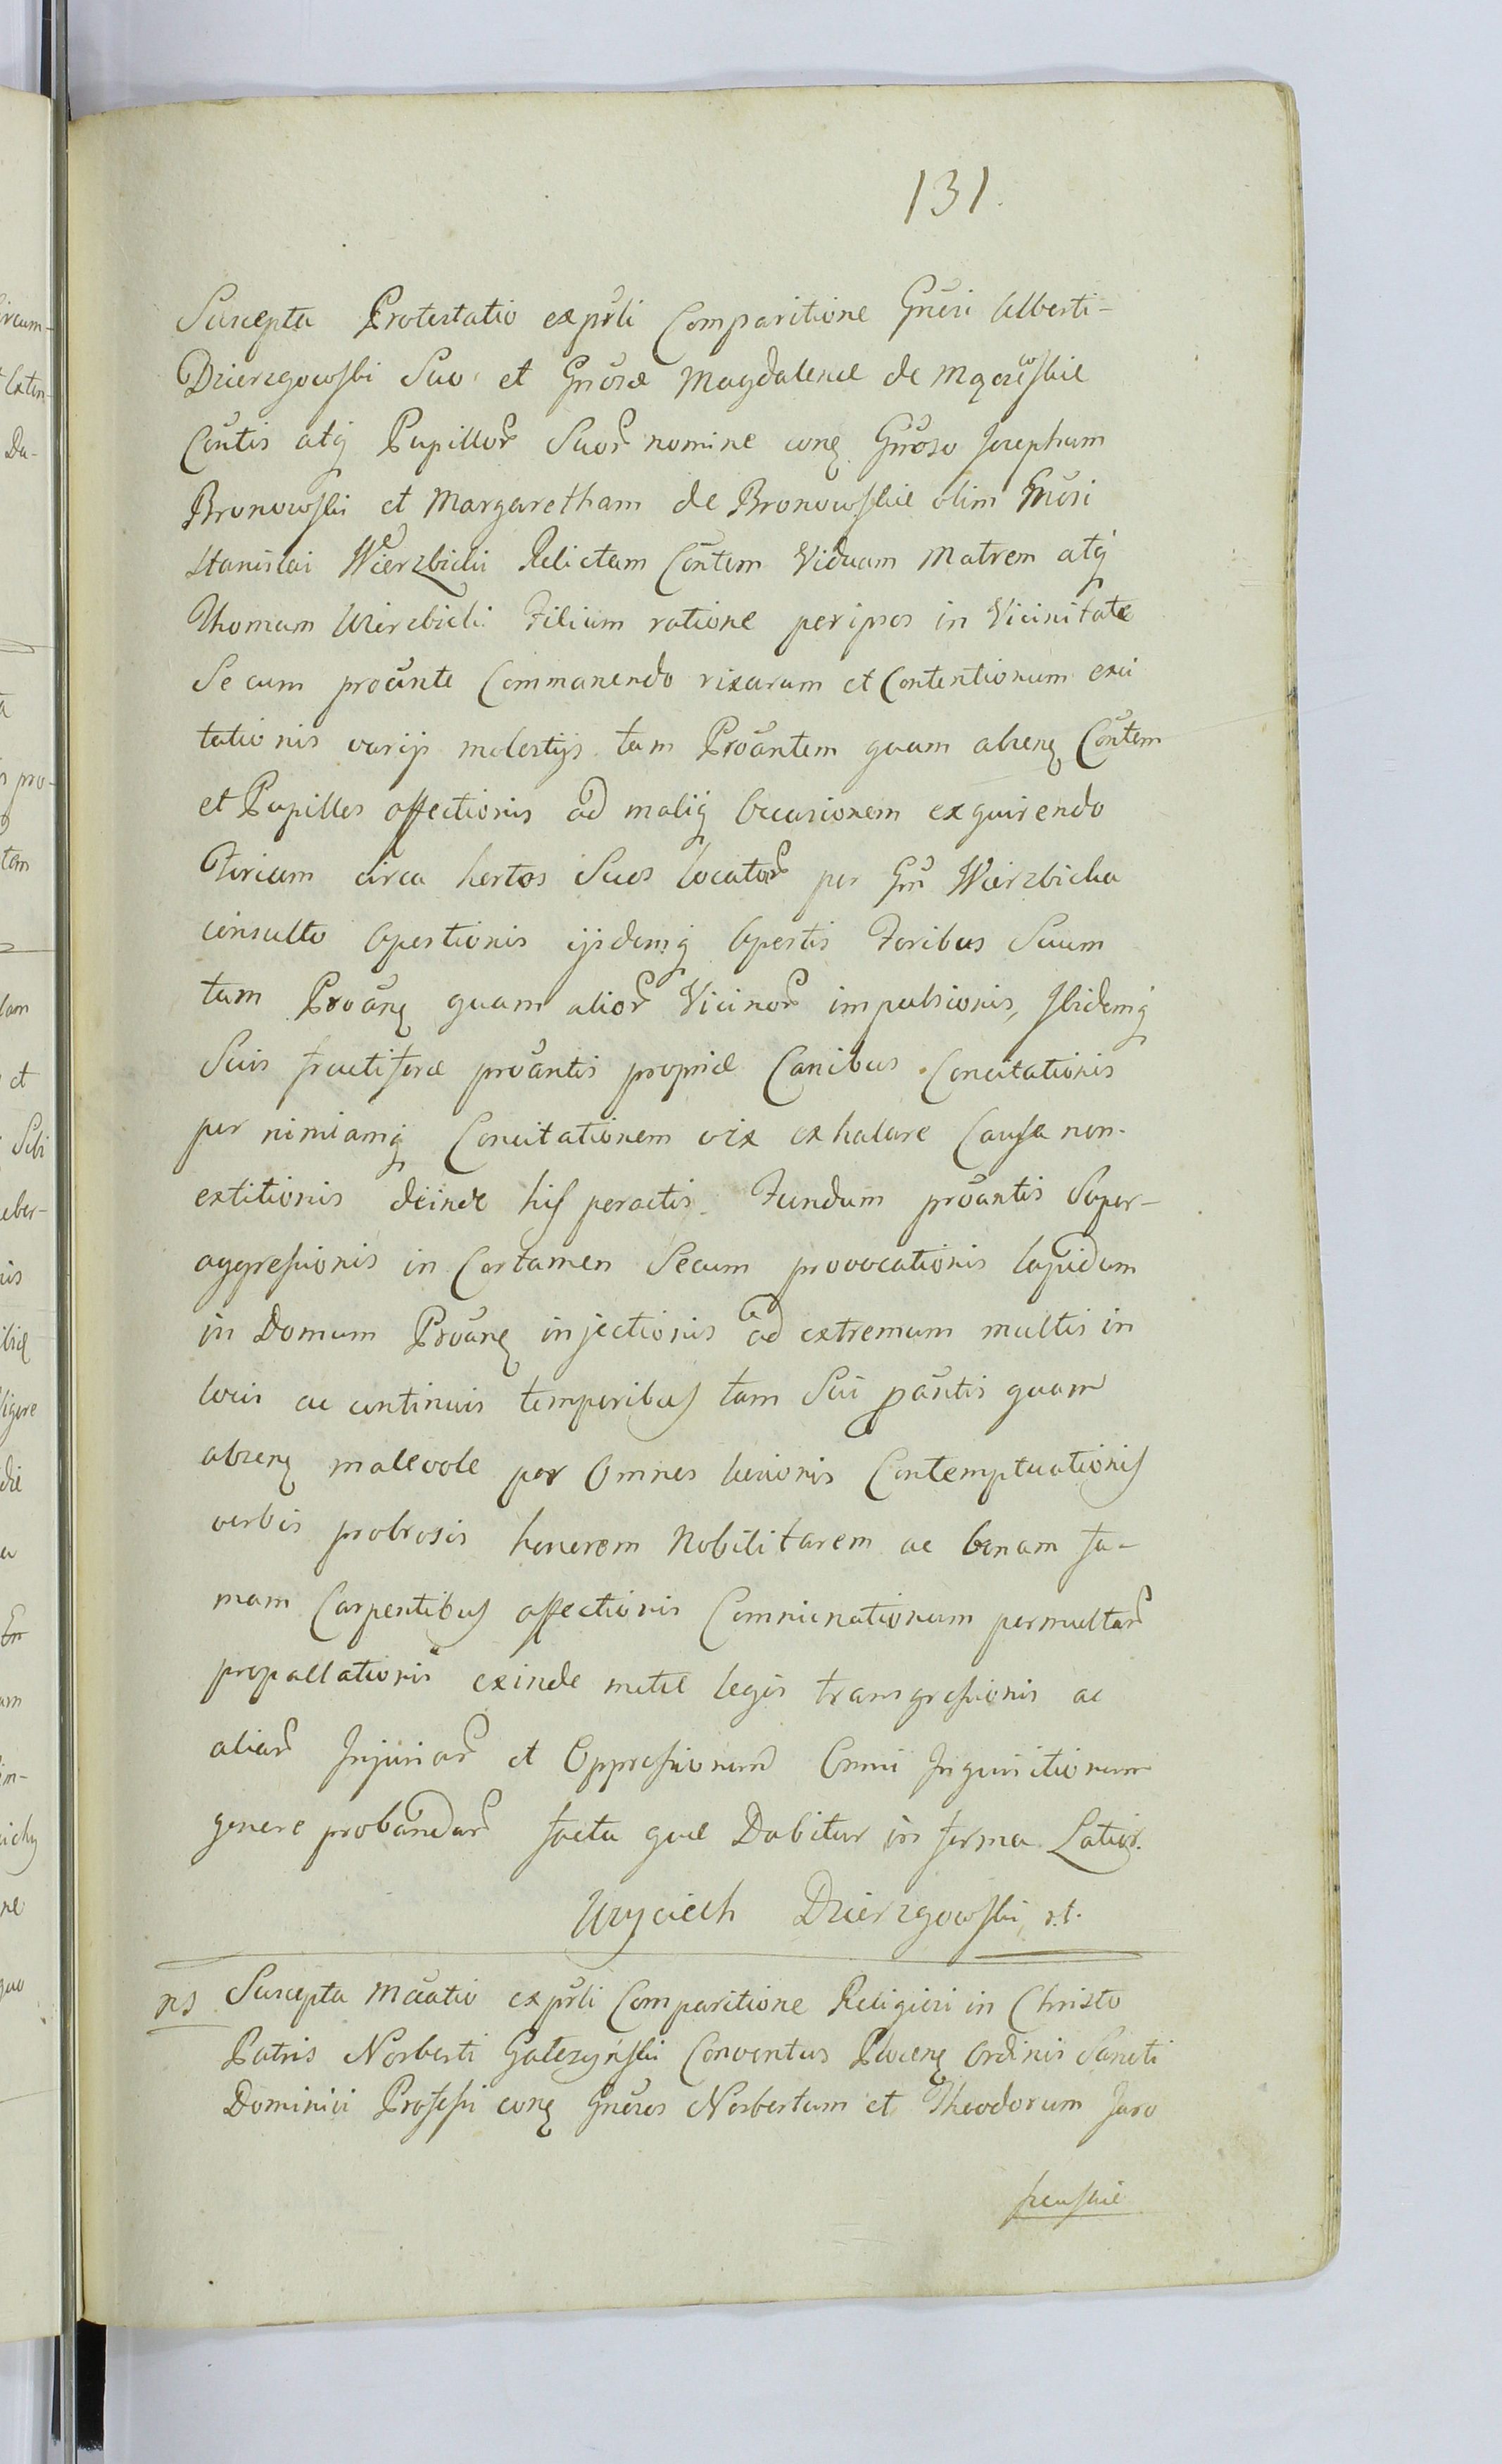 131.
Suscepta Protestatio ex prſli Comparitione Gnrsi Alberti-
Dzierzgowski Suo et Gnrosæ Magdalenæ de Mączewskie
Contis atq Pupillor Suor nomine conq Gnroso Josephum
Bronowski et Margaretham de Bronowskie olim Gnrsi
Stanislai Wierzbicki Relictam Contem Viduam Matrem atq
Thomam Wierzbicki Filium ratione per ipsos in Vicinitate
Secum proante Commanendo rixarum et Contentionum exci
tationis varijs molestijs tam Proantem quam absenq Contem
et Pupillos affectionis ad maliq Occasionem exquirendo
Forium circa hortos Suos locator per Gn Wierzbicka
consulto Apertionis ijsdemq Apertis Foribus Suum
tam Proanq quam alior Vicinor impulsionis, Ibidemq
Suis fructiferæ proantis propriæ Canibus Concitationis
per nimiamq Concitationem vix exhalare Causa non-
extitionis deinde his peractis Fundum proantis Super-
aggressionis in Certamen Secum provocationis lapidum
in Domum Proanq injectionis ad extremum multis in
locis ac continuis temporibus tam Sui pantis quam
absenq malevole per Omnes lusionis Contemptuationis
verbis probrosis honorem Nobilitarem ac bonam fa-
mam Carpentibus affectionis Comminationum permultar
propallationis exinde metæ legis transgressionis ac
aliar Injuriar et Oppressionum Omni Inquisitionum
genere probandar facta quæ Dabitur in forma Latior.
Woyciech Dzierzgowski, r.t.
ns Suscepta Mcatio ex prſli Comparitione Religiosi in Christo
Patris Norberti Gałczyński Conventus Plocenq Ordinis Sancti
Dominici Professi conq Gnrsos Norbertum et Theodorum Jaro